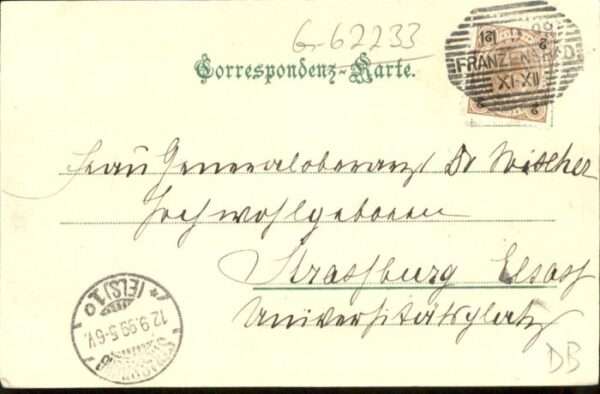 G-62233
Correspondenz-Karte.
FRANZENSBAD
XI-XII
2
2
Frau Generaloberarzt Dr
Hochwohlgeboren
Strassburg Elsass
Universitätsplatz
(ELS) 1
12.9.99.5-6V.
DB